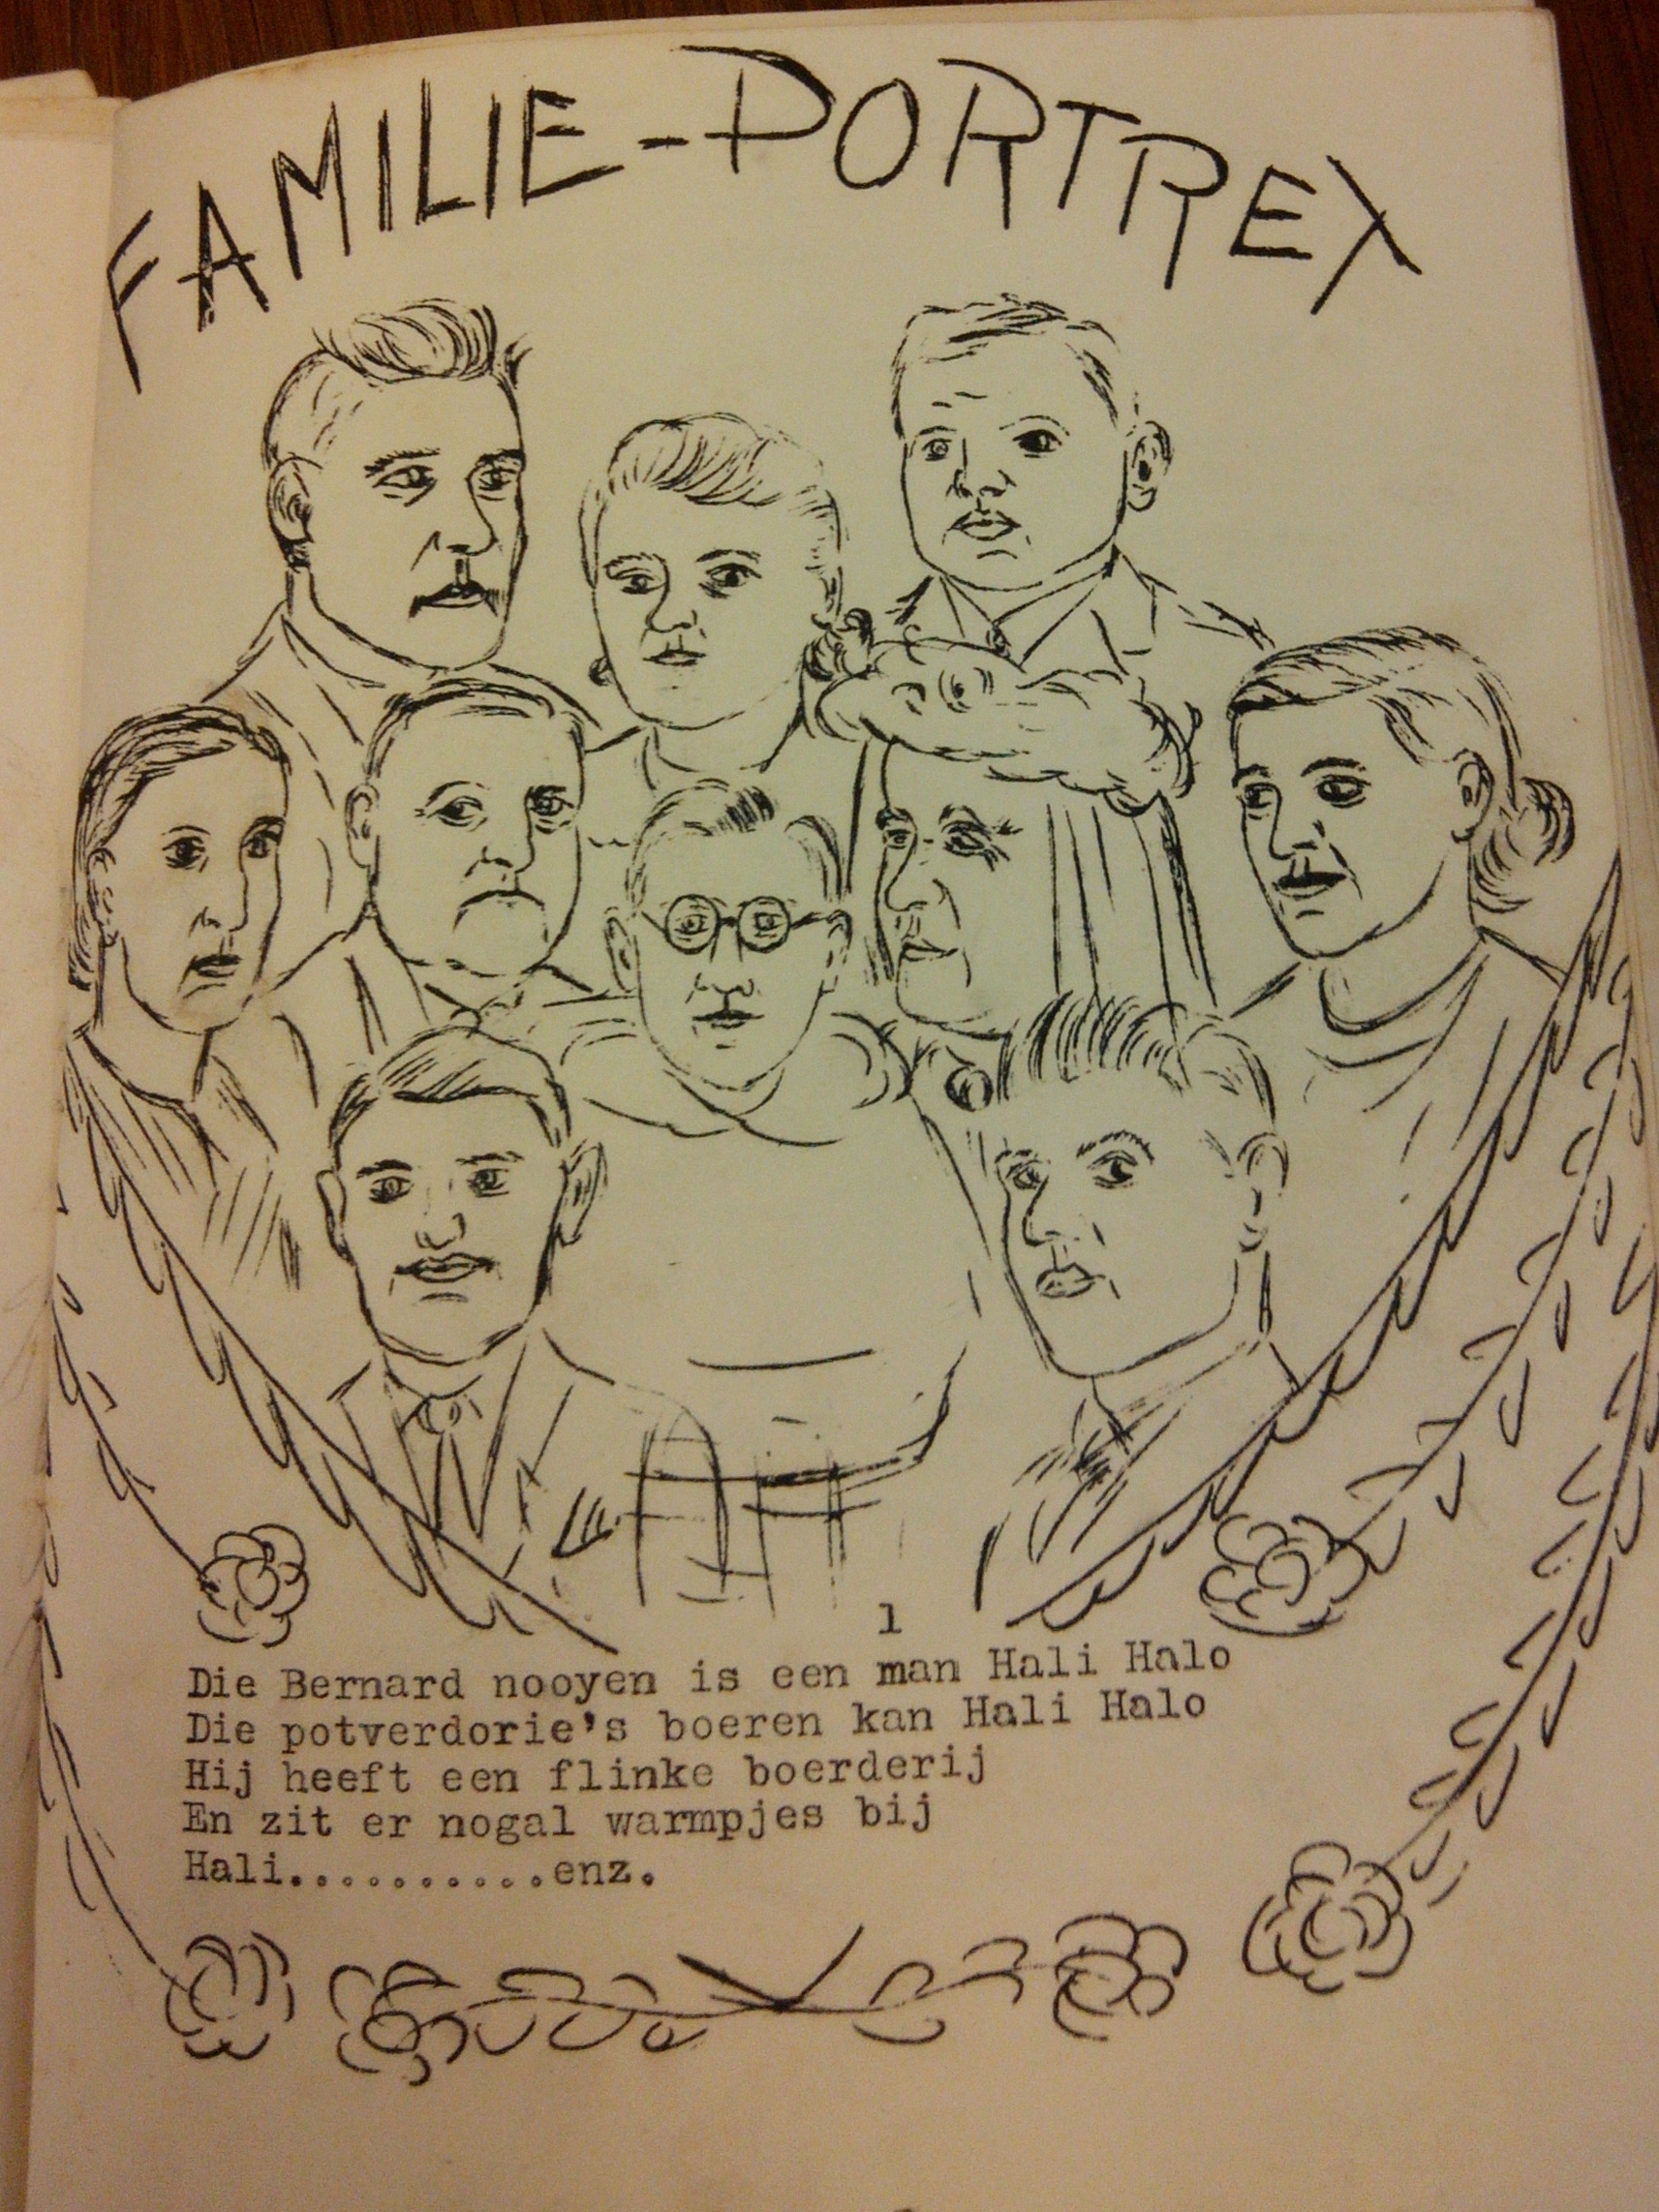 FAMILIE-PORTREX
1
Die Bernard nooyen is een man Hali Halo
Die potverdorie's boeren kan Hali Halo
Hij heeft een flinke boerderij
En zit er nogal warmpjes bij
Hali...........enz.